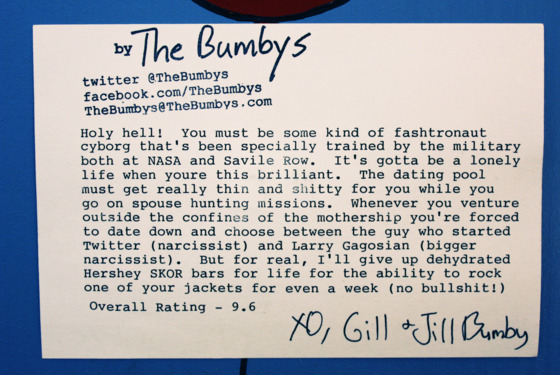 by The Bumbys
twitter @TheBumbys
facebook.com/TheBumbys
TheBumbys@TheBumbys.com
Holy hell! You must be some kind of fashtronaut
cyborg that's been specially trained by the military
both at NASA and Savile Row. It's gotta be a lonely
life when youre this brilliant. The dating pool
must get really thin and shitty for you while you
go on spouse hunting missions. Whenever you venture
outside the confines of the mothership you're forced
to date down and choose between the guy who started
Twitter (narcissist) and Larry Gagosian (bigger
narcissist). But for real, I'll give up dehydrated
Hershey SKOR bars for life for the ability to rock
one of your jackets for even a week (no bullshit!)
Overall Rating - 9.6
XO, Gill + Jill Bumby